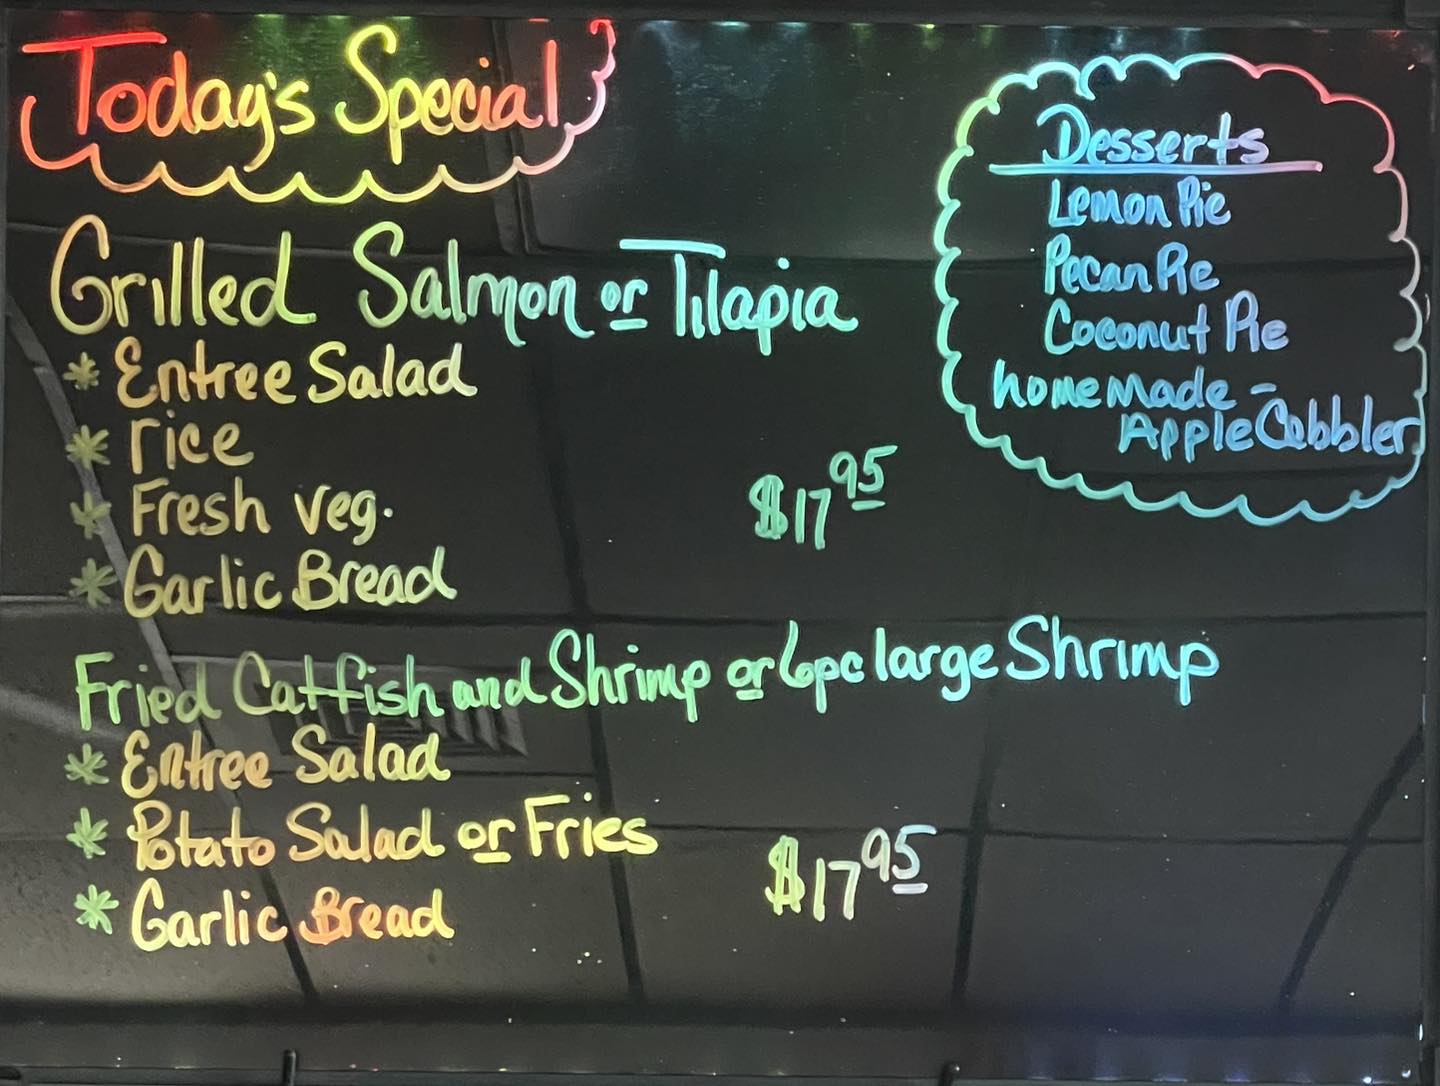 Today's Special
Grilled Salmon or Tilapia
* Entree Salad
* rice
* Fresh veg.
* Garlic Bread
$17.95
Fried Catfish and Shrimp or 6pc large Shrimp
* Entree Salad
* Potato Salad or Fries
* Garlic Bread
$17.95
Desserts
Lemon Pie
Pecan Pie
Coconut Pie
homemade -
Apple Cobbler